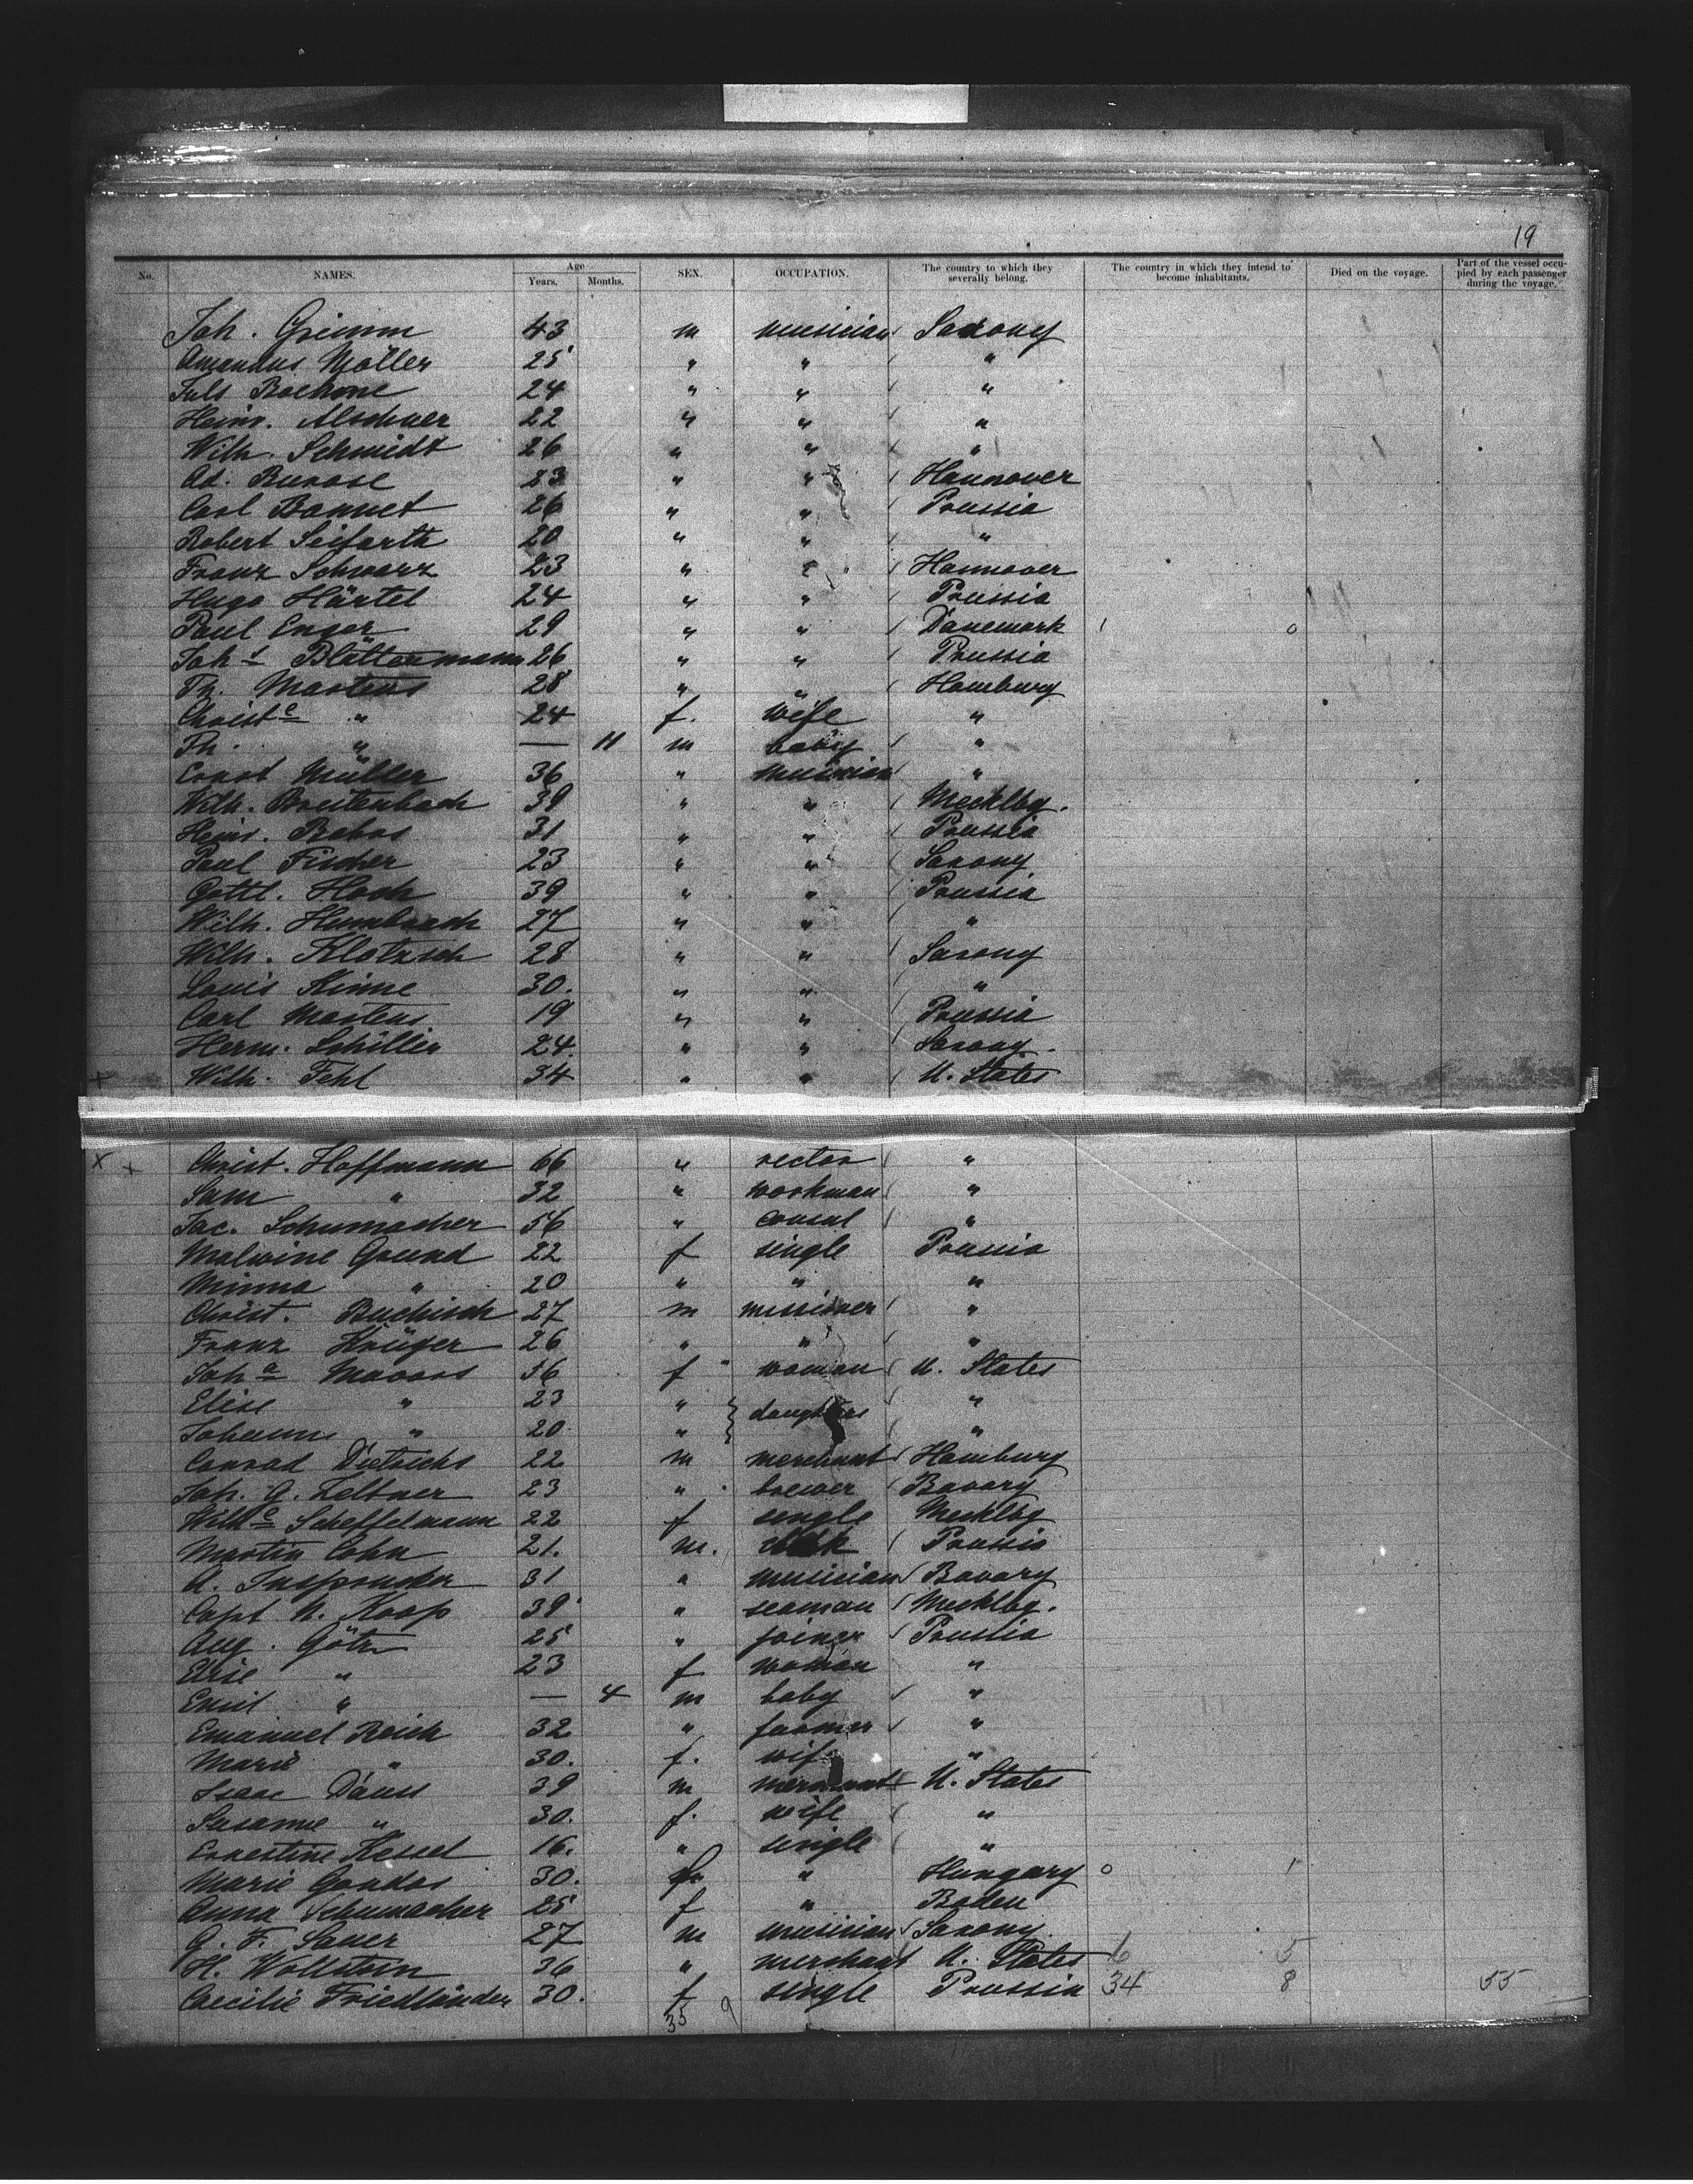 19
No. NAMES. Age Years. Months. SEX. OCCUPATION. The country to which they severally belong. The country in which they intend to become inhabitants. Died on the voyage. Part of the vessel occupied by each passenger during the voyage.
Joh. Grimm 43 m musician Saxony
Amandus Möller 25 " " "
Juls 24 " " "
Heinr. Alschner 22 " " "
Wilh. Schmidt 26 " " "
Ad. Burose 23 " " Hannover
Carl Bannet 26 " " Prussia
Robert Seifarth 20 " " "
Franz Schwarz 23 " Hannover
Hugo Härtel 24 " " Prussia
Paul Enger 29 " " Danemark
Joh. Blättermann 26 " " Prussia
Th. Martens 28 " " Hamburg
Christe " 24 f. wife "
Th. " — 11 m baby "
Ernst Müller 36 " musician "
Wilh. Breitenbach 39 " " Mecklbg.
Heinr. 31 " " Prussia
Paul Fischer 23 " " Saxony
Gottl. Hoch 39 " " Prussia
Wilh. 27 " " "
Wilh. Klotzsch 28 " " Saxony
Louis Kinne 30. " " "
Carl Martens 19 " " Prussia
Herm. Schiller 24. " " Saxony.
+ Wilh. Fehl 34 " " U. States
x + Christ. Hoffmann 66 " rector "
Sam " 32 " workman "
Jac. Schumacher 56 " consul "
Malwine Grund 22 f single Prussia
Minna " 20 " " "
Christ. Buchisch 27 m missioner "
Franz Krüger 26 " " "
Joha 56 f woman U. States
Elise " 23 " daughters "
Johanne " 20 " "
Conrad Dietrichs 22 m merchant Hamburg
Joh. G. Zeltner 23 " brewer Bavary
Wilhe Scheffelmann 22 f single Mecklbg
Martin Cohn 21. m. clerk Prussia
A. 31 " musician Bavary
Capt N. Koop 39 " seaman Mecklbg.
Aug. Götz 25 " joiner Prussia
Elise " 23 f woman "
Emil " — 4 m baby "
Emanuel Reich 32 " farmer "
Marie " 30. f. wife "
Isaac 39 m merchant U. States
Susanne " 30. f. wife "
Ernestine Kessel 16. " single "
Marie Gondos 30. " Hungary 0 1
Anna Schumacher 25 f " Baden
G. F. Sauer 27 m musician Saxony
H. Wollstein 36 " merchant U. States 6 5
Caecilie Friedländer 30. f single Prussia 34 8 55
35 9